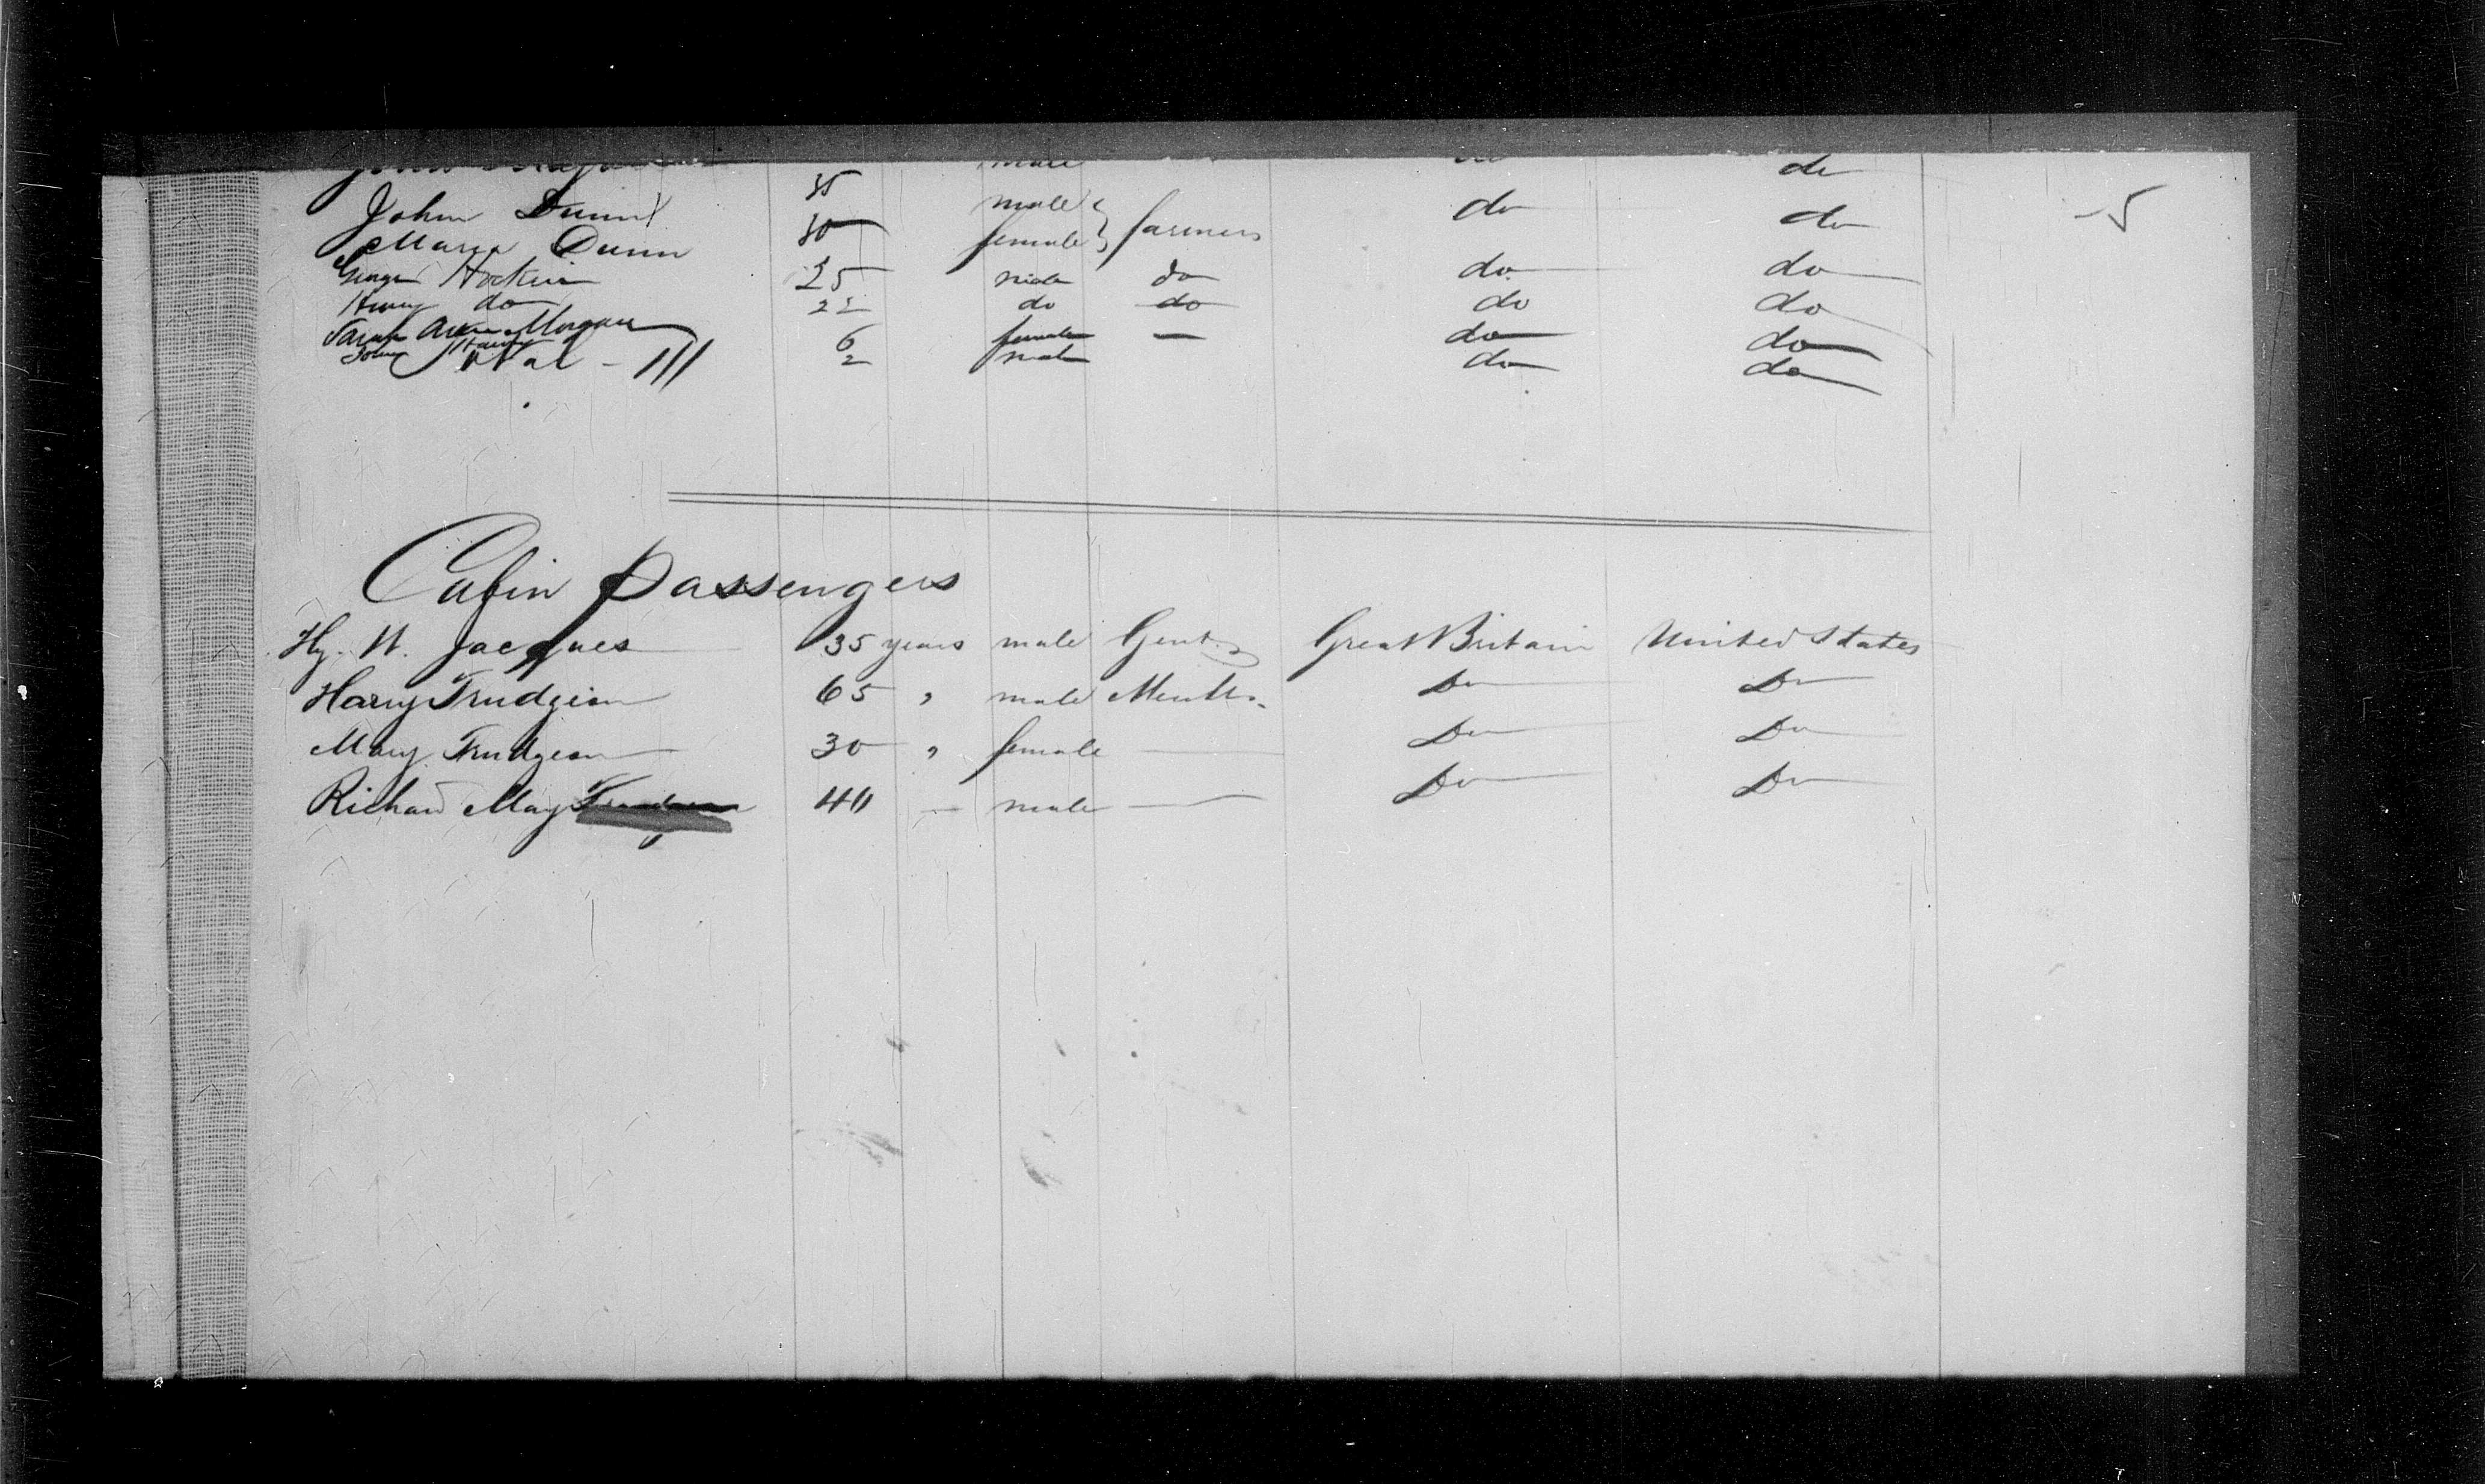 John male do
John Dunn 35 male } farmers do do 5
Maria Dunn 30 female
George Hockin 25 male do do do
Henry do 22 do do do do
Sarah Ann Morgan 6 female — do do
John Henry 2 male do do
Total - 111
Cabin Passengers
Hy. W. Jacques 35 years male Gent. Great Britain United States
Harry Trudgian 65 " male Do Do
Mary Trudgean 30 " female — Do Do
Richard May 40 — male — Do Do